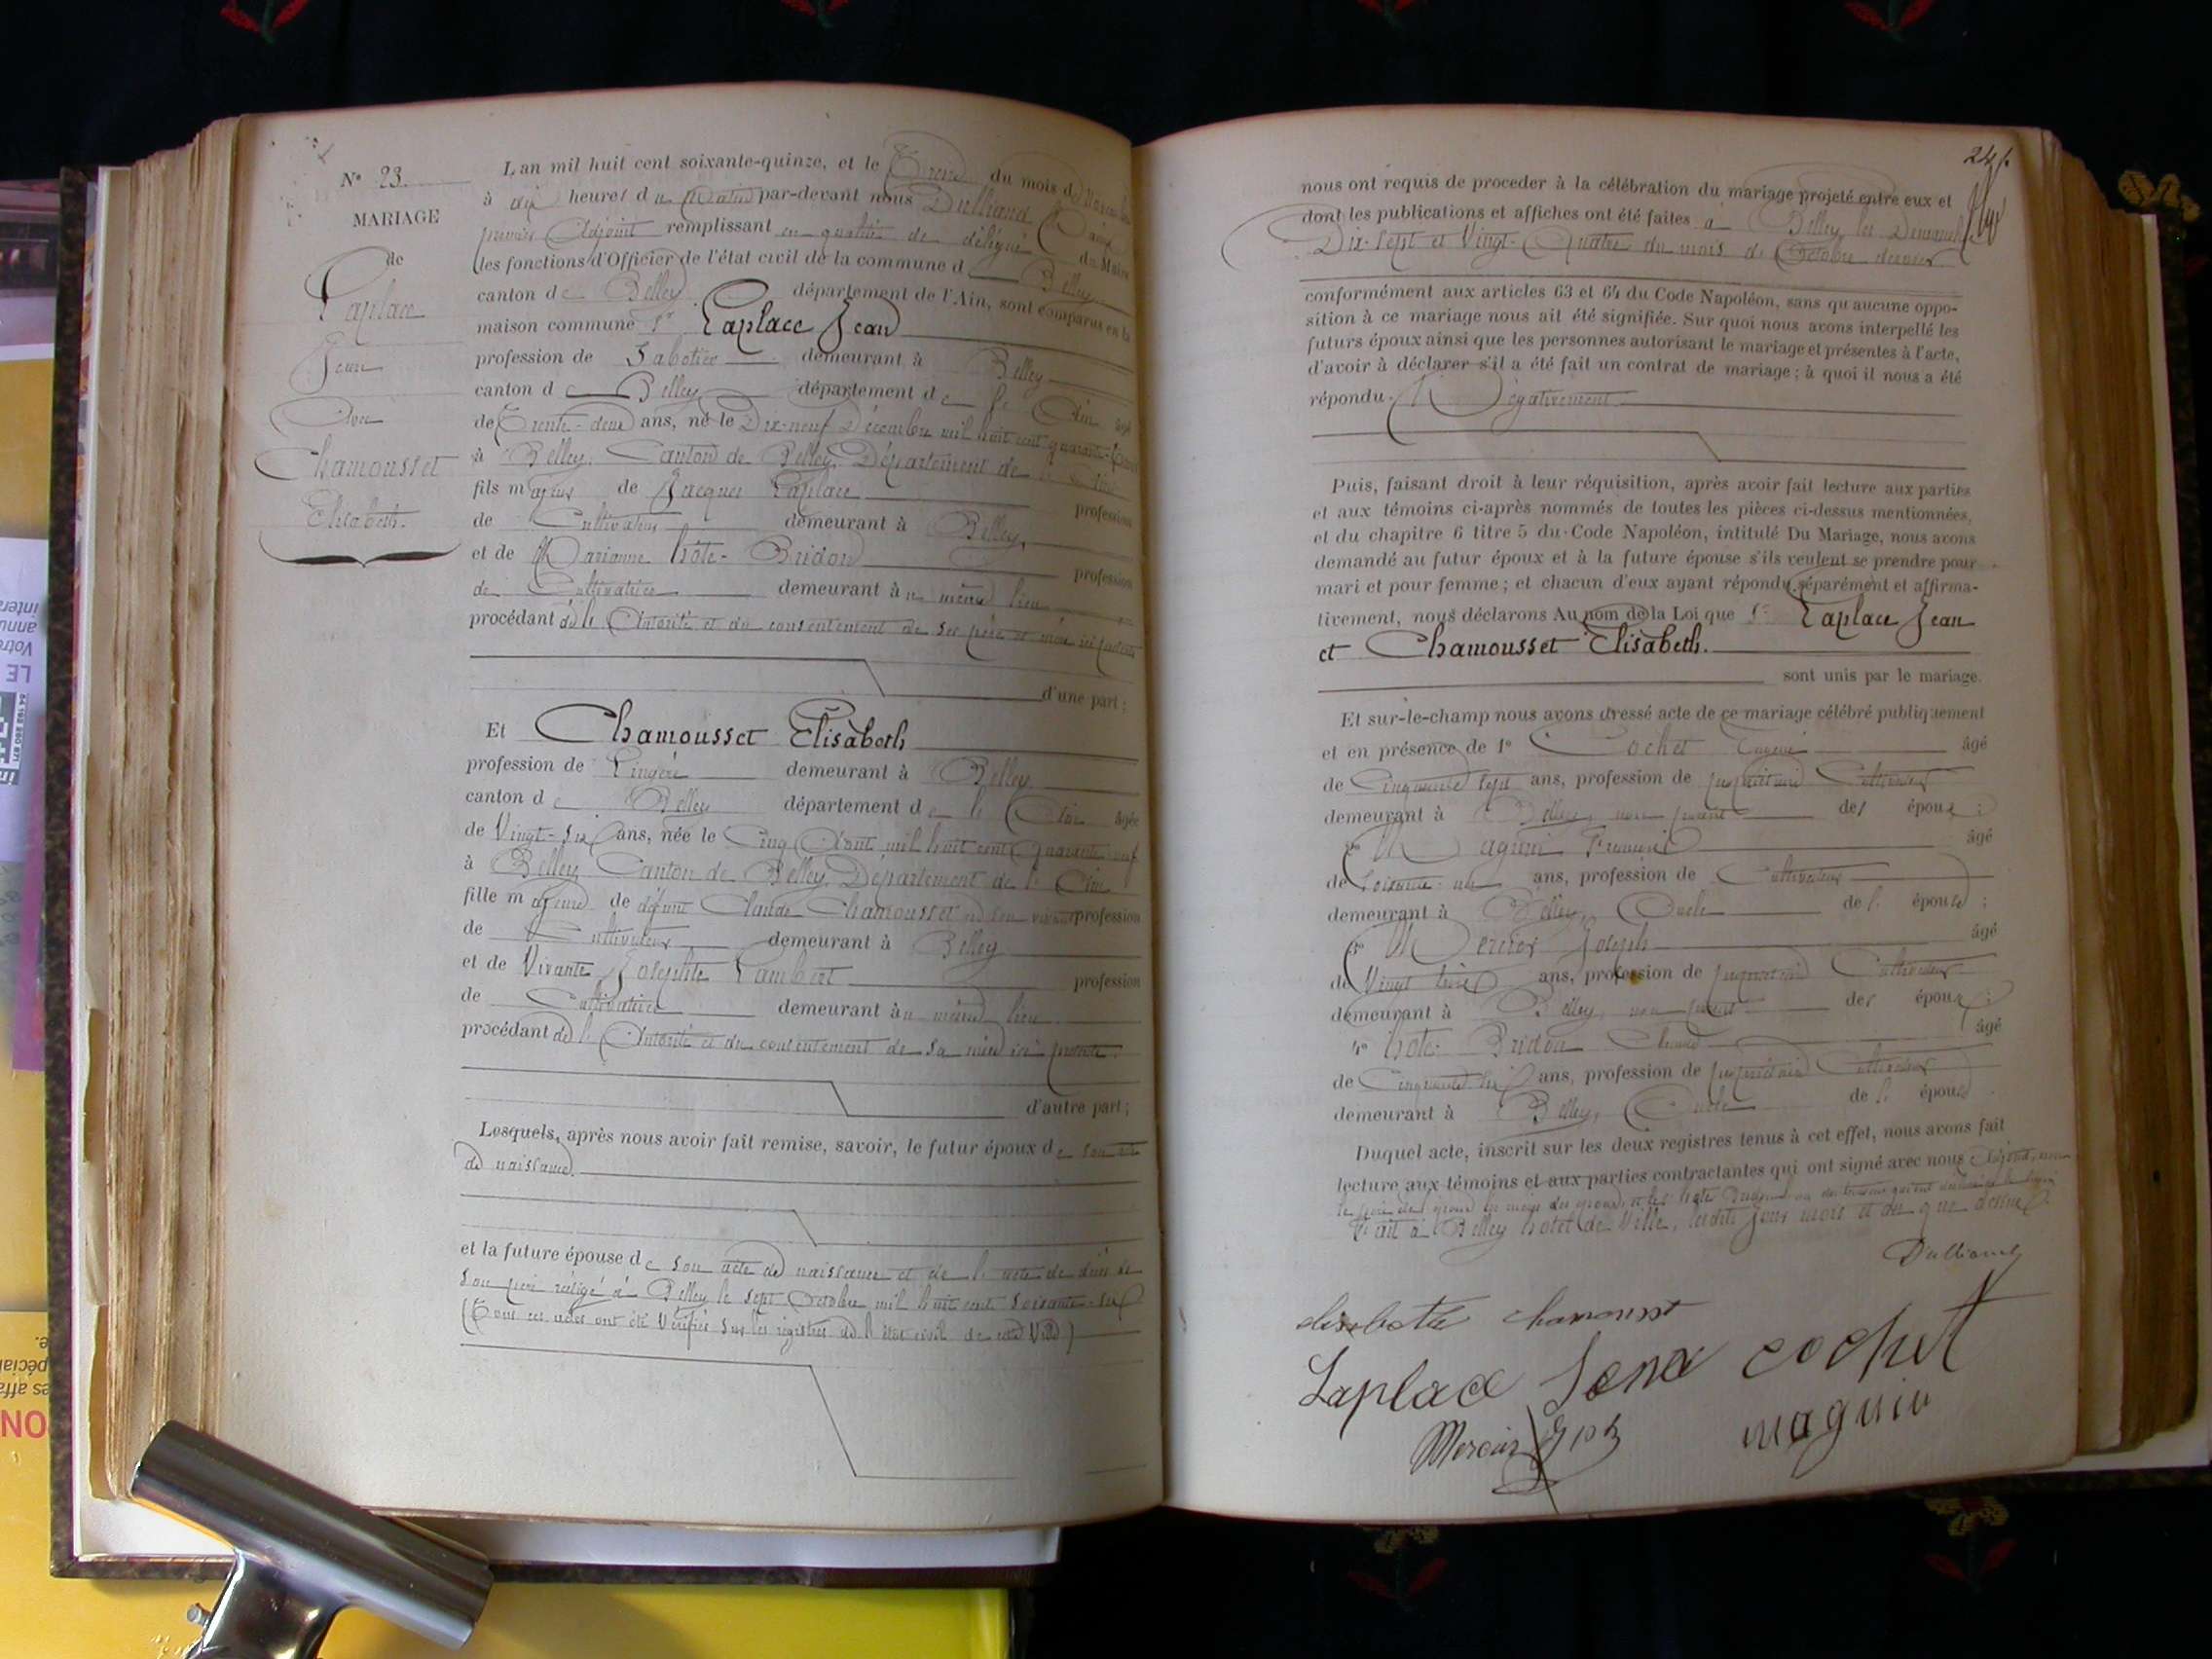 N° 23.
MARIAGE
de
Laplace
Jean
Avec
Chamousset
Elisabeth.
L'an mil huit cent soixante-quinze, et le Treize du mois de Novembre
à dix heures du Matin par-devant nous Dulliand
premier Adjoint remplissant en qualité de délégué du Maire
les fonctions d'Officier de l'état civil de la commune d Belley
canton de Belley département de l'Ain, sont comparus en la
maison commune Sr Laplace Jean
profession de Sabotier demeurant à Belley
canton de Belley département de l' Ain âgé
de Trente-deux ans, né le Dix-neuf Décembre mil huit cent quarante-
à Belley, Canton de Belley, Département de l'Ain
fils majeur de Jacques Laplace profession
de Cultivateur demeurant à Belley,
et de Marianne hôte-Bridon profession
de Cultivatrice demeurant au même lieu
procédant de l'Autorité et du consentement de ses père et mère ici présents
d'une part;
Et Chamousset Elisabeth
profession de Lingère demeurant à Belley
canton de Belley département de l' Ain âgée
de Vingt-six ans, née le Cinq Août mil huit cent quarante neuf
à Belley, Canton de Belley, Département de l'Ain
fille majeure de défunt Claude Chamousset en son vivant profession
de Cultivateur demeurant à Belley
et de Vivante Josephte Lambert profession
de Cultivatrice demeurant au même lieu
procédant de l'Autorité et du consentement de sa mère ici présente.
d'autre part;
Lesquels, après nous avoir fait remise, savoir, le futur époux de son acte
de naissance.
et la future épouse de son acte de naissance et de l'acte de décès de
son père rédigé à Belley le sept Octobre mil huit cent soixante-six
(Tous ces actes ont été Vérifiés sur les registres de l'état civil de cette Ville)
nous ont requis de proceder à la célébration du mariage projeté entre eux et
dont les publications et affiches ont été faites à Belley les Dimanches
Dix-sept et Vingt-Quatre du mois de Octobre dernier
conformément aux articles 63 et 64 du Code Napoléon, sans qu'aucune oppo-
sition à ce mariage nous ait été signifiée. Sur quoi nous avons interpellé les
futurs époux ainsi que les personnes autorisant le mariage et présentes à l'acte,
d'avoir à déclarer s'il a été fait un contrat de mariage; à quoi il nous a été
répondu Négativement.
Puis, faisant droit à leur réquisition, après avoir fait lecture aux parties
et aux témoins ci-après nommés de toutes les pièces ci-dessus mentionnées,
et du chapitre 6 titre 5 du Code Napoléon, intitulé Du Mariage, nous avons
demandé au futur époux et à la future épouse s'ils veulent se prendre pour
mari et pour femme; et chacun d'eux ayant répondu séparément et affirma-
tivement, nous déclarons Au nom de la Loi que Sr Laplace Jean
et Chamousset Elisabeth.
sont unis par le mariage.
Et sur-le-champ nous avons dressé acte de ce mariage célébré publiquement
et en présence de 1° Cochet Eugène âgé
de Cinquante sept ans, profession de propriétaire Cultivateur
demeurant à Belley, non parent des époux;
2° Magnin François âgé
de soixante-un ans, profession de Cultivateur
demeurant à Belley, Oncle de l'épouse;
3° Mercier Joseph âgé
de Vingt ans, profession de propriétaire Cultivateur
demeurant à Belley, non parent des époux;
4° hôte-Bridon Claude âgé
de Cinquante ans, profession de propriétaire Cultivateur
demeurant à Belley, Oncle de l'époux
Duquel acte, inscrit sur les deux registres tenus à cet effet, nous avons fait
lecture aux témoins et aux parties contractantes qui ont signé avec nous Adjoint, non
le père de l'époux les mères des époux, et le hôte Bridon
Fait à Belley hôtel de Ville, lesdits jour mois et an que dessus
Dulliand
elisabette chamousset
Laplace Jean cochet
Mercier Jph magnin